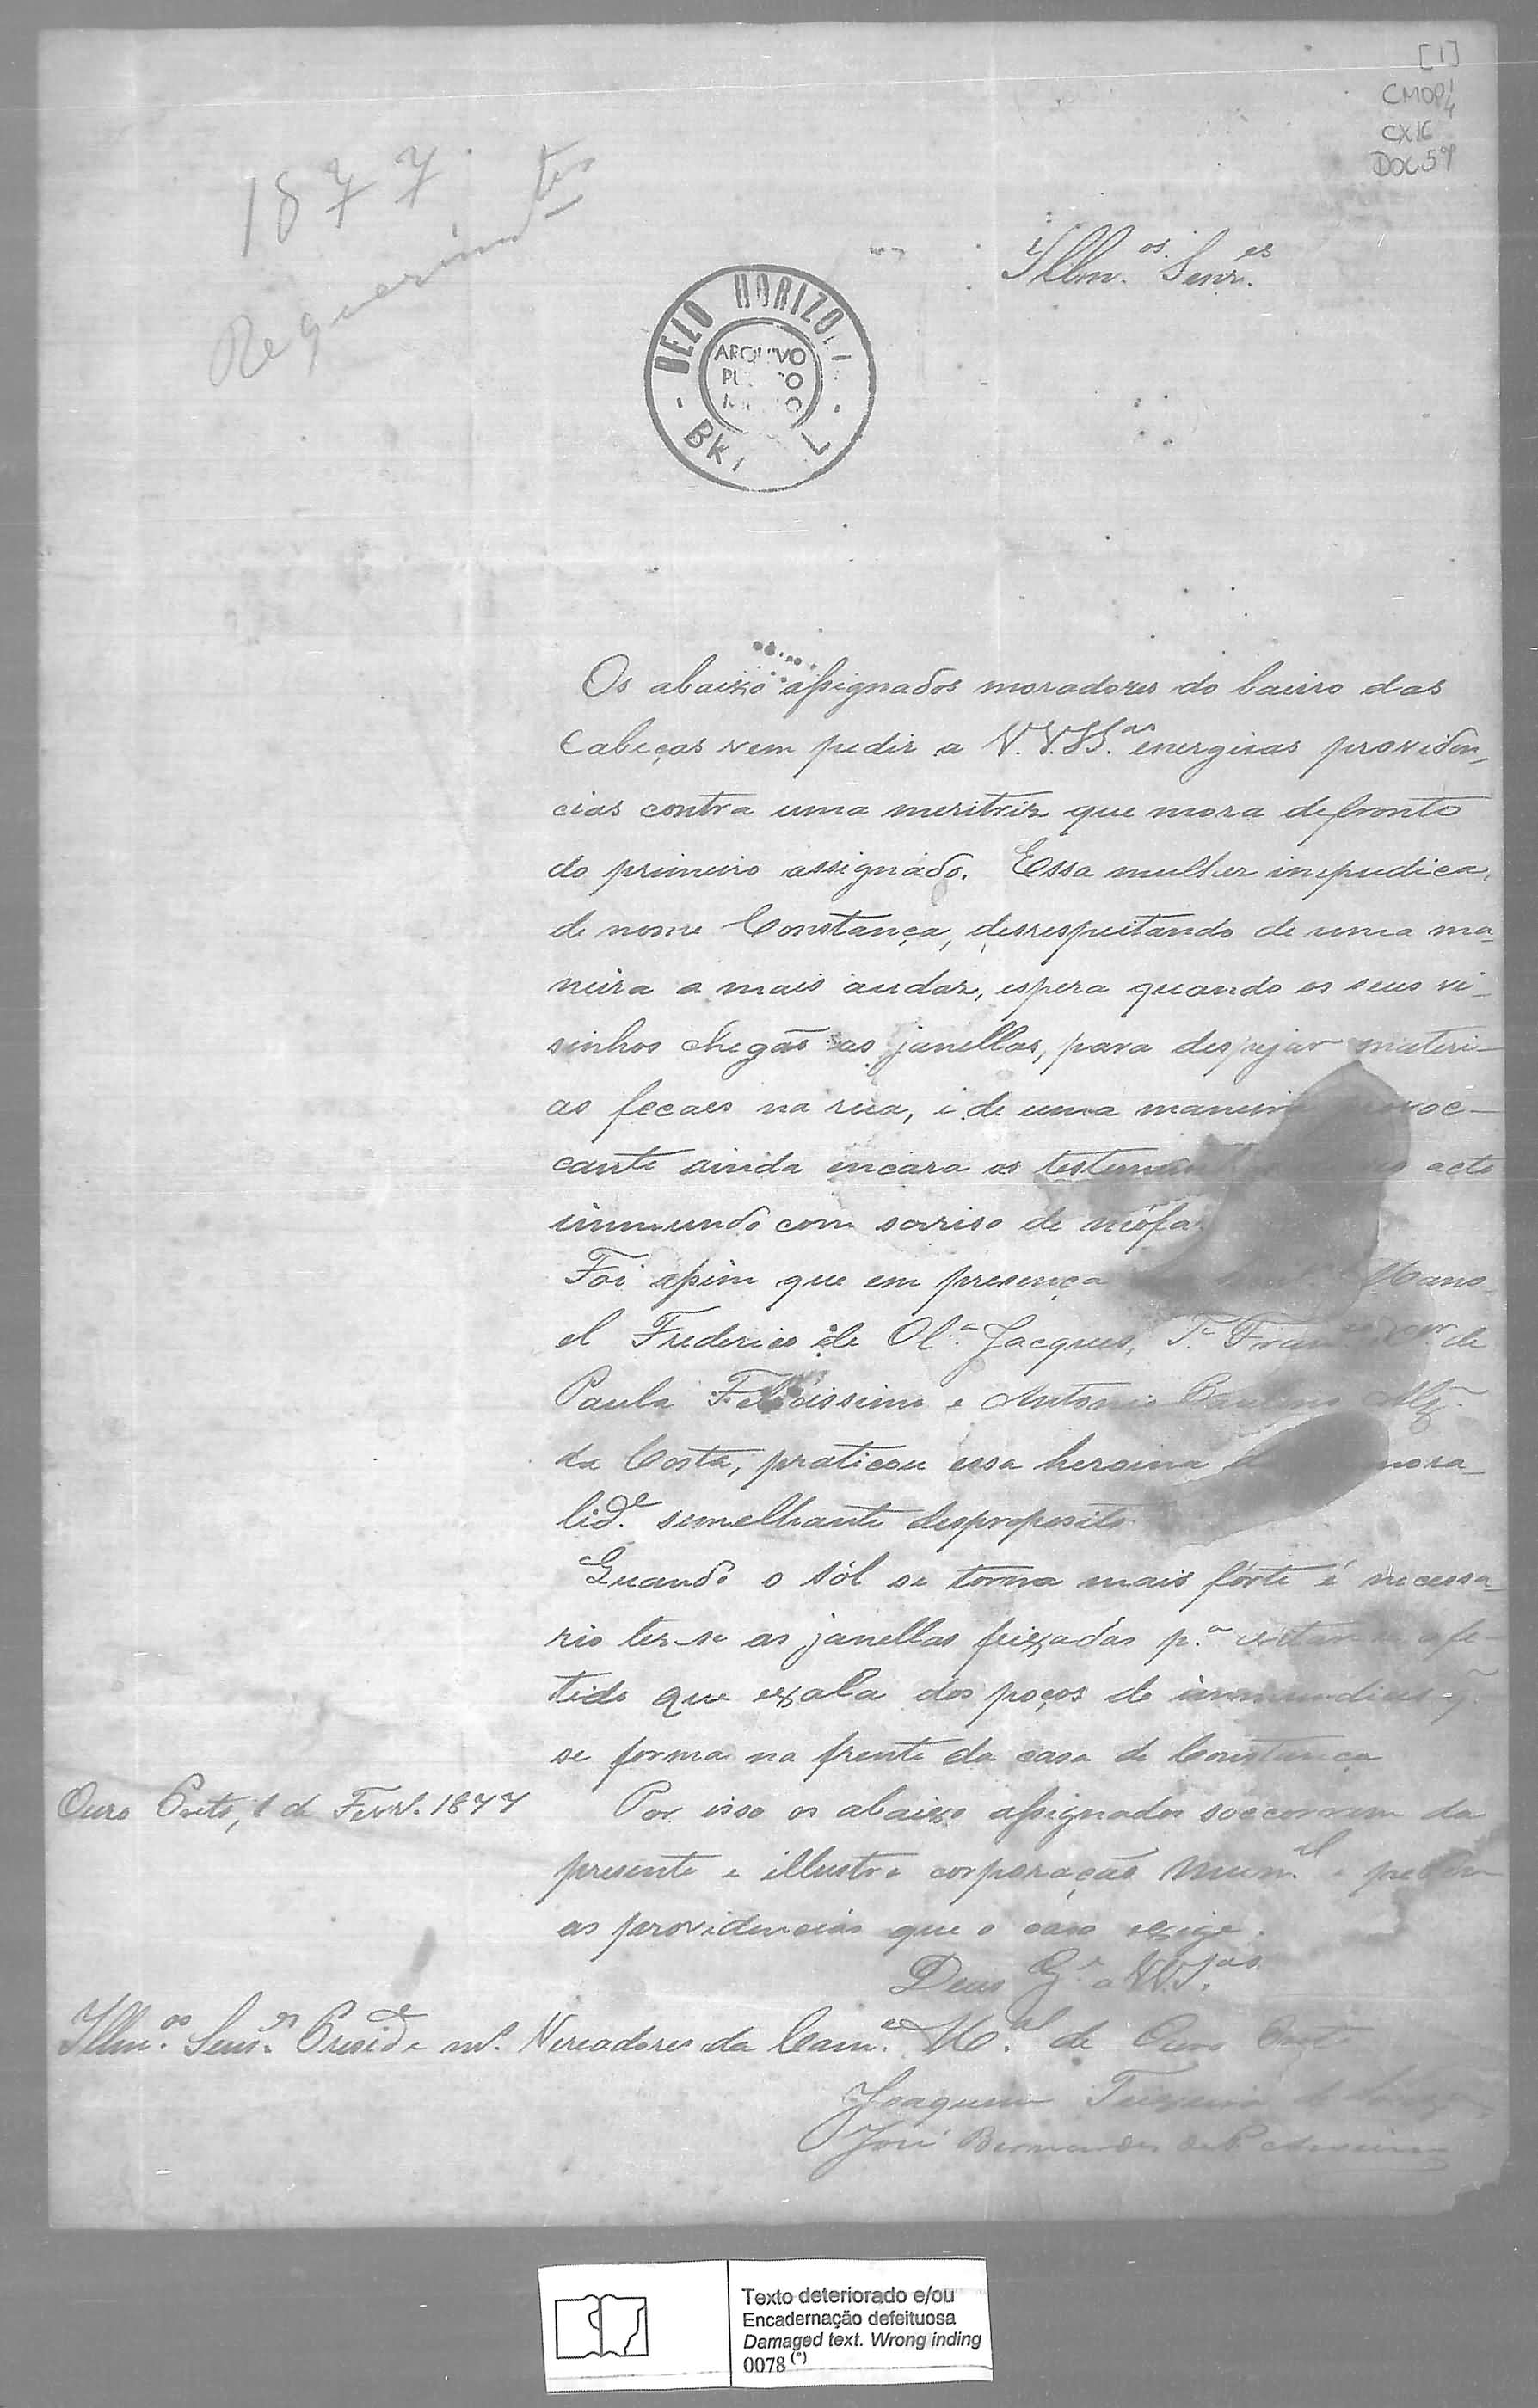 [1]
CMOP
CX16
DOC 59
1877
Requerim.tos
Illm.os Senr.es
BELO HORIZO
ARQUIVO
BR
Os abaixo assignados moradores do bairro das
Cabeças vem pedir a V.V.SS.as energicas providen_
cias contra uma meritriz que mora defronte
do primeiro assignado. Essa mulher impudica,
de nome Constança, desrespeitando de uma ma_
neira a mais audaz, espera quando os seus vi_
sinhos chegão as janellas, para despejar materi_
as fecaes na rua, e de uma maneira
cante ainda encara as acto
immundo com sorriso de mófa.
Foi assim que em presença Mano_
el Frederico de Ol.a Jacques, T.e de
Paula Felicissimo e Antonio Paulino
da Costa, praticou essa heroina mora_
lid.e semelhante desproposito.
Quando o sól se torna mais fórte é necessa_
rio ter-se as janellas feixadas p.a evitar-se o fe_
tido que exala dos poços de immundicias q.
se forma na frente da casa de Constança
Ouro Preto, 1 de Fevr. 1877
Por isso os abaixo assignados soccorrem da
presente e illustre corporação Mun.al e pedem
as providencias que o caso exige.
Deus G.e a VV.S.as
Illm.os Senr.es Presid.e e m.s Vereadores da Cam.ra M.al de Ouro Preto
Joaquim Teixeira
José Bernardes
Texto deteriorado e/ou
Encadernação defeituosa
Damaged text. Wrong inding
0078 (*)